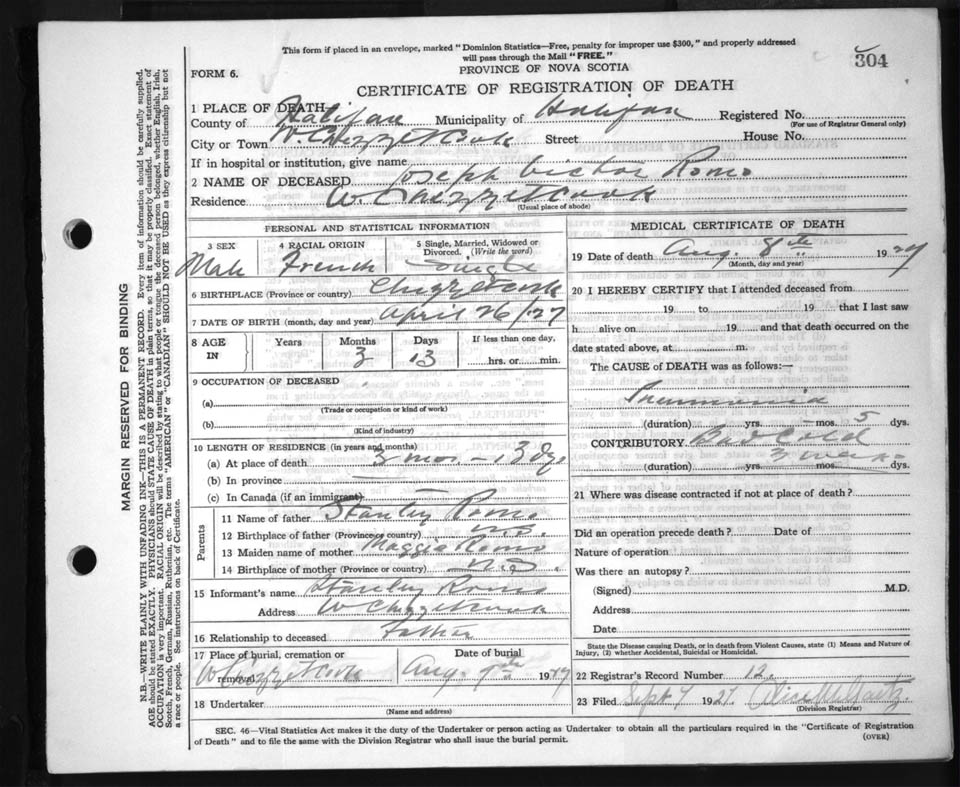 This form if placed in an envelope, marked "Dominion Statistics—Free, penalty for improper use $300," and properly addressed
will pass through the Mail "FREE."
304
FORM 6.
PROVINCE OF NOVA SCOTIA
CERTIFICATE OF REGISTRATION OF DEATH
1 PLACE OF DEATH
County of Halifax Municipality of Halifax Registered No.
(For use of Registrar General only)
City or Town W. Chezzetcook Street House No.
If in hospital or institution, give name
2 NAME OF DECEASED Joseph Victor Romo
Residence W. Chezzetcook
(Usual place of abode)
PERSONAL AND STATISTICAL INFORMATION
3 SEX 4 RACIAL ORIGIN 5 Single, Married, Widowed or Divorced. (Write the word)
Male French Single
6 BIRTHPLACE (Province or country) Chezzetcook
7 DATE OF BIRTH (month, day and year) April 26/27
8 AGE IN Years Months Days If less than one day,
3 13 hrs. or min.
9 OCCUPATION OF DECEASED
(a)
(Trade or occupation or kind of work)
(b)
(Kind of industry)
10 LENGTH OF RESIDENCE (in years and months)
(a) At place of death 3 mos. – 13 dys
(b) In province
(c) In Canada (if an immigrant)
Parents
11 Name of father Stanley Romo
12 Birthplace of father (Province or country) N.S.
13 Maiden name of mother Maggie Romo
14 Birthplace of mother (Province or country) N.S.
15 Informant's name Stanley Romo
Address W Chezzetcook
16 Relationship to deceased Father
17 Place of burial, cremation or removal Date of burial
W Chezzetcook Aug. 9th 1927
18 Undertaker
(Name and address)
MEDICAL CERTIFICATE OF DEATH
19 Date of death Aug. 8th 1927
(Month, day and year)
20 I HEREBY CERTIFY that I attended deceased from
19 to 19 that I last saw
h alive on 19 and that death occurred on the
date stated above, at m.
The CAUSE of DEATH was as follows:—
Pneumonia
(duration) yrs. – mos. 5 dys.
CONTRIBUTORY Bad Cold
(duration) yrs. mos. 3 weeks dys.
21 Where was disease contracted if not at place of death?
Did an operation precede death? Date of
Nature of operation
Was there an autopsy?
(Signed) M.D.
Address
Date
State the Disease causing Death, or in death from Violent Causes, state (1) Means and Nature of
Injury, (2) whether Accidental, Suicidal or Homicidal.
22 Registrar's Record Number 12.
23 Filed Sept 7 1927
(Division Registrar)
SEC. 46—Vital Statistics Act makes it the duty of the Undertaker or person acting as Undertaker to obtain all the particulars required in the "Certificate of Registration
of Death" and to file the same with the Division Registrar who shall issue the burial permit.
(OVER)
MARGIN RESERVED FOR BINDING
N.B.—WRITE PLAINLY WITH UNFADING INK—THIS IS A PERMANENT RECORD. Every item of information should be carefully supplied.
AGE should be stated EXACTLY. PHYSICIANS should STATE CAUSE OF DEATH in plain terms, so that it may be properly classified. Exact statement of
OCCUPATION is very important. RACIAL ORIGIN will be described by stating to what people or tongue the deceased person belonged, whether English, Irish,
Scotch, French, German, Russian, Ruthenian, etc. The terms "AMERICAN" or "CANADIAN" SHOULD NOT BE USED as they express citizenship but not
a race or people. See instructions on back of Certificate.